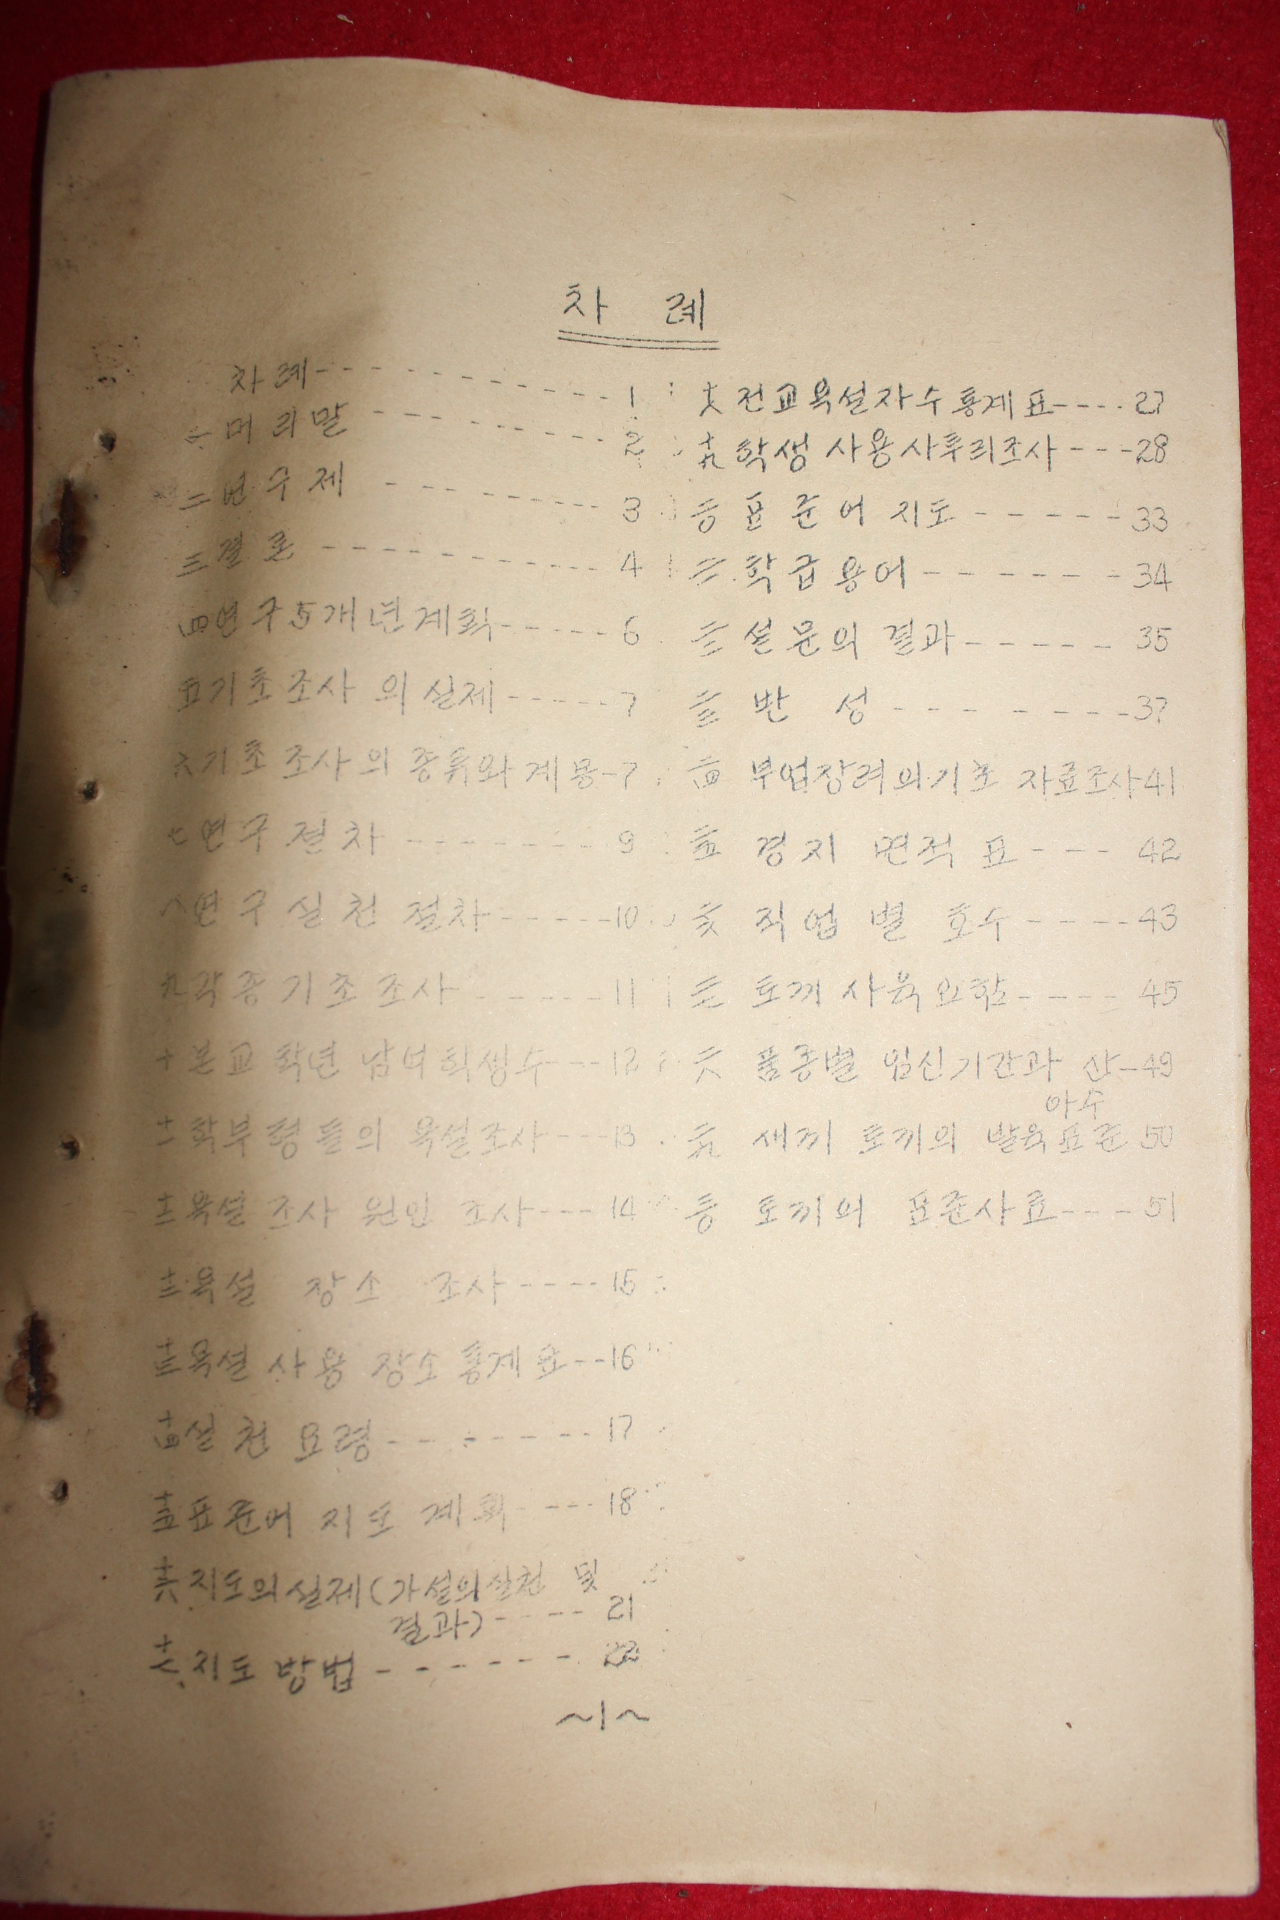 차 례
차례 1
一 머리말 2
二 연구제 3
三 결론 4
四 연구 5개년계획 6
五 기초조사의 실제 7
六 기초조사의 종류와 계몽 7
七 연구절차 9
八 연구 실천 절차 10
九 각종기초조사 11
十 본교 학년 남녀학생수 12
十一 학부형들의 욕설조사 13
十二 욕설 조사 원인 조사 14
十三 욕설 장소 조사 15
욕설 사용 장소통계표 16
十四 실천 요령 17
十五 표준어 지도 계획 18
十六 지도의실제(가설의실천 및
결과) 21
十七 지도방법 22
전교욕설자수통계표 27
十九 학생 사용사투리조사 28
표준어 지도 33
학급용어 34
설문의 결과 35
반 성 37
부업장려의기초 자료조사 41
경지 면적 표 42
직업별 호수 43
토끼 사육요람 45
품종별 임신기간과 산 49
아수
새끼 토끼의 발육표준 50
토끼의 표준사료 51
~1~